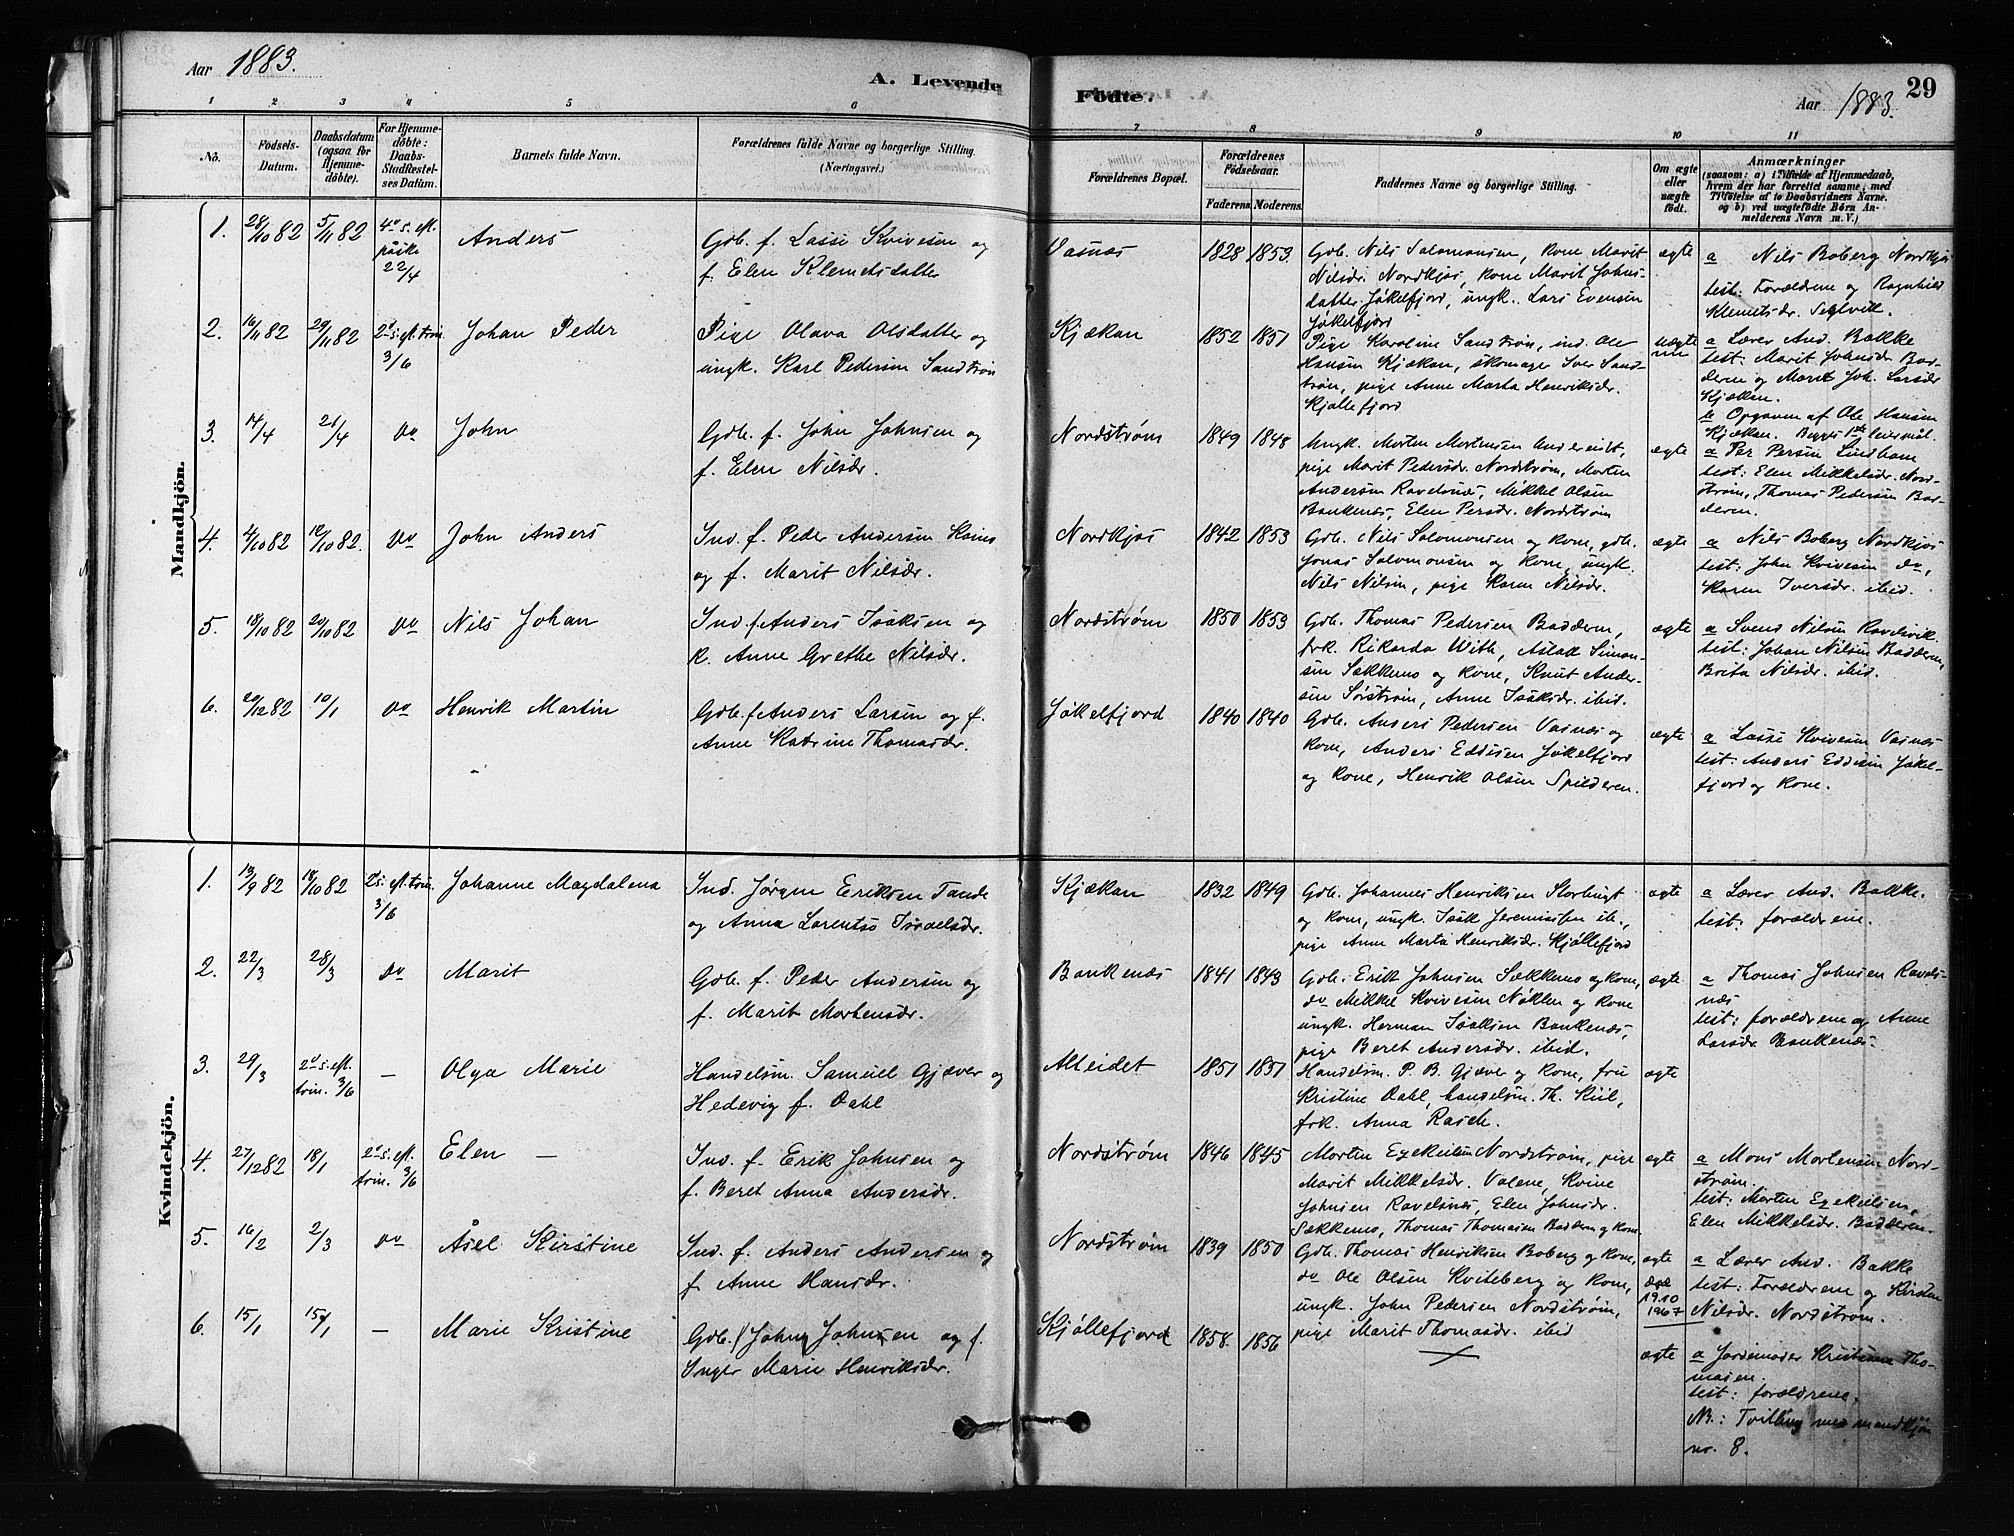 Aar 1883.
A. Levende
Födte.
Aar 1883.
29
1 2 3 4 5 6 7 8 9 10 11
No.
Födsels-Datum.
Daabsdatum (ogsaa for Hjemme-döbte).
For Hjemme-döbte: Daabs-Stadfæstel-ses Datum.
Barnets fulde Navn.
Forældrenes fulde Navne og borgerlige Stilling. (Næringsvei.)
Forældrenes Bopæl.
Forældrenes Födselsaar.
Faderens. Moderens.
Faddernes Navne og borgerlige Stilling.
Om ægte eller uægte födt.
Anmærkninger
(saasom: a) i Tilfælde af Hjemmedaab,
hvem der har forrettet samme, med
Tilföielse af to Daabsvidners Navne.
og b) ved uægtefödte Börn An-
melderens Navn m. V.)
Mandkjön.
1. 28/10 82 5/11 82 4de s. eft. påske 22/4
Anders
Gdb. f. Lasse Kvivesen og
f. Elen Klemetsdatter
Vasnæs 1828 1853
Gdb. Nils Salomonsen, kone Marit
Nilsdr. Nordkjos, kone Marit Johns-
datter Jøkelfjord, ungk. Lars Evensen
Jøkelfjord
ægte
a Nils Boberg Nordkjos
test: Forældrene og Ragnhild
Klemetsdr. Seglvik.
2. 16/11 82 29/11 82 2d s. eft. trin. 3/6
Johan Peder
Pige Olava Olsdatter og
ungk. Karl Pedersen Sandstrøm
Kjækan 1852 1851
Pige Karoline Sandstrøm, ind. Ole
Hansen Kjækan, skomager Iver Sand-
strøm, pige Anne Marta Henriksdr.
Kjøllefjord
uægte
a Lærer And. Bakke
test: Marit Johnsdr. Bad-
deren og Marit Joh. Larsdr
Kjækan.
b Opgaven af Ole Hansen
Kjækan. Begges 1ste leiermål.
3. 14/4 21/4 do
John
Gdb. f. John Johnsen og
f. Elen Nilsdr.
Nordstrøm 1849 1848
Ungk. Morten Mortensen Andereidt,
pige Marit Pedersdr. Nordstrøm, Morten
Andersen Ravelsnæs, Mikkel Olsen
Bankenæs, Elen Persdr. Nordstrøm
ægte
a Per Persen Lindbom
test: Elen Mikkelsdr. Nord-
strøm, Thomas Pedersen Bad-
deren.
4. 4/10 82 12/10 82. do
John Anders
Ind. f. Peder Andersen
og f. Marit Nilsdr.
Nordkjos 1842 1853
Gdb. Nils Salomonsen og kone, gdb.
Jonas Salomonsen og kone, ungk.
Nils Nilsen, pige Karen Nilsdr.
ægte
a Nils Boberg Nordkjos
test: John Kvivesen do,
Karen Iversdr. ibid.
5. 18/10 82 29/10 82 do
Nils Johan
Ind. f. Anders Isaksen og
k. Anne Grethe Nilsdr.
Nordstrøm 1850 1853
Gdb. Thomas Pedersen Badderen,
frk. Rikarda With, Aslak Simon-
sen Sækkemo og kone, Knut Ander-
sen Sørstrøm, Anne Isaksdr. ibid.
ægte
a Svend Nilsen Ravelsvik.
test: Johan Nilsen Badderen,
Brita Nilsdr. ibid.
6. 20/12 82 10/1 do
Henrik Martin
Gdb. f. Anders Larsen og f.
Anne Katrine Thomasdr.
Jøkelfjord 1840 1840
Gdb. Anders Pedersen Vasnæs og
kone, Anders Eddisen Jøkelfjord
og kone, Henrik Olsen Spilderen.
ægte
a Lasse Kvivesen Vasnæs
test: Anders Eddisen Jøkel-
fjord og kone.
Kvindekjön.
1. 13/9 82 18/10 82 2d s. eft. trin. 3/6
Johanne Magdalena
Ind. Jørgen Eriksen Tande
og Anna Lorentse Israelsdr.
Kjækan 1832 1849
Gdb. Johannes Henriksen Storbugt
og kone, ungk. Isak Jeremiassen ib.,
pige Anne Marta Henriksdr. Kjøllefjord
ægte
a Lærer And. Bakke.
test: forældrene.
2. 22/3 28/3 do
Marit
Gdb. f. Peder Andersen og
f. Marit Mortensdr.
Bankenæs 1841 1843
Gdb. Erik Johnsen Sækkemo og kone,
do Mikkel Kvivesen Nøklen og kone
ungk. Herman Isaksen Bankenæs,
pige Beret Andersdr. ibid.
ægte
a Thomas Johnsen Ravels-
næs
test: forældrene og Anne
Larsdr. Bankenæs.
3. 29/3 2d s. eft. trin. 3/6 —
Olga Marie
Handelsm. Samuel Gjæver og
Hedevig f. Dahl
Alteidet 1851 1851
Handelsm. P. B. Gjæver og kone, fru
Kristine Dahl, handelsm. Th. Kiil,
frk. Anna Rasch.
ægte
4. 27/12 82 18/1 2d s. eft. trin. 3/6
Elen —
Ind. f. Erik Johnsen og
f. Beret Anna Andersdr.
Nordstrøm 1846 1845
Morten Ezekielsen Nordstrøm, pige
Marit Mikkelsdr. Valene, Kvine
Johnsen Ravelsnæs, Elen Johnsdr.
Sækkemo, Thomas Thomassen Baddern og kone
ægte
a Mons Mortensen Nord-
strøm.
test: Morten Ezekielsen,
Elen Mikkelsdr. Badderen.
5. 16/2 2/3 do
Åsel Kirstine
Ind. f. Anders Andersen og
f. Anne Hansdr.
Nordstrøm 1839 1850
Gdb. Thomas Henriksen Boberg og kone,
do Ole Olsen Kviteberg og kone,
ungk. John Pedersen Nordstrøm,
pige Marit Thomasdr. ibid
ægte
19.10
1967
a Lærer And. Bakke
test: Forældrene og Kirsten
Nilsdr. Nordstrøm.
6. 15/1 15/1 —
Marie Kristine
Gdb. f. John Johnsen og f.
Inger Marie Henriksdr.
Kjøllefjord 1858. 1856
ægte
a Jordemoder Kristiane Tho-
masen.
test: forældrene.
NB.: Tvilling med mandkjøn
nr. 8.